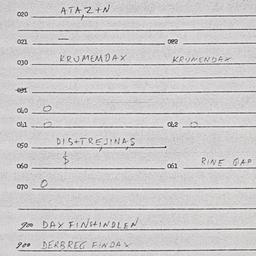 020 ATA,Z+N
021 — 022
030 KRUMEMDAX KRUMENDAX
031
040 O
041 O 042 O
050 DIS+TREJINAS
060 $ 061 RINE GAP
070 O
900 DAX FINSHINDLEN
900 DERBREG FINDAX